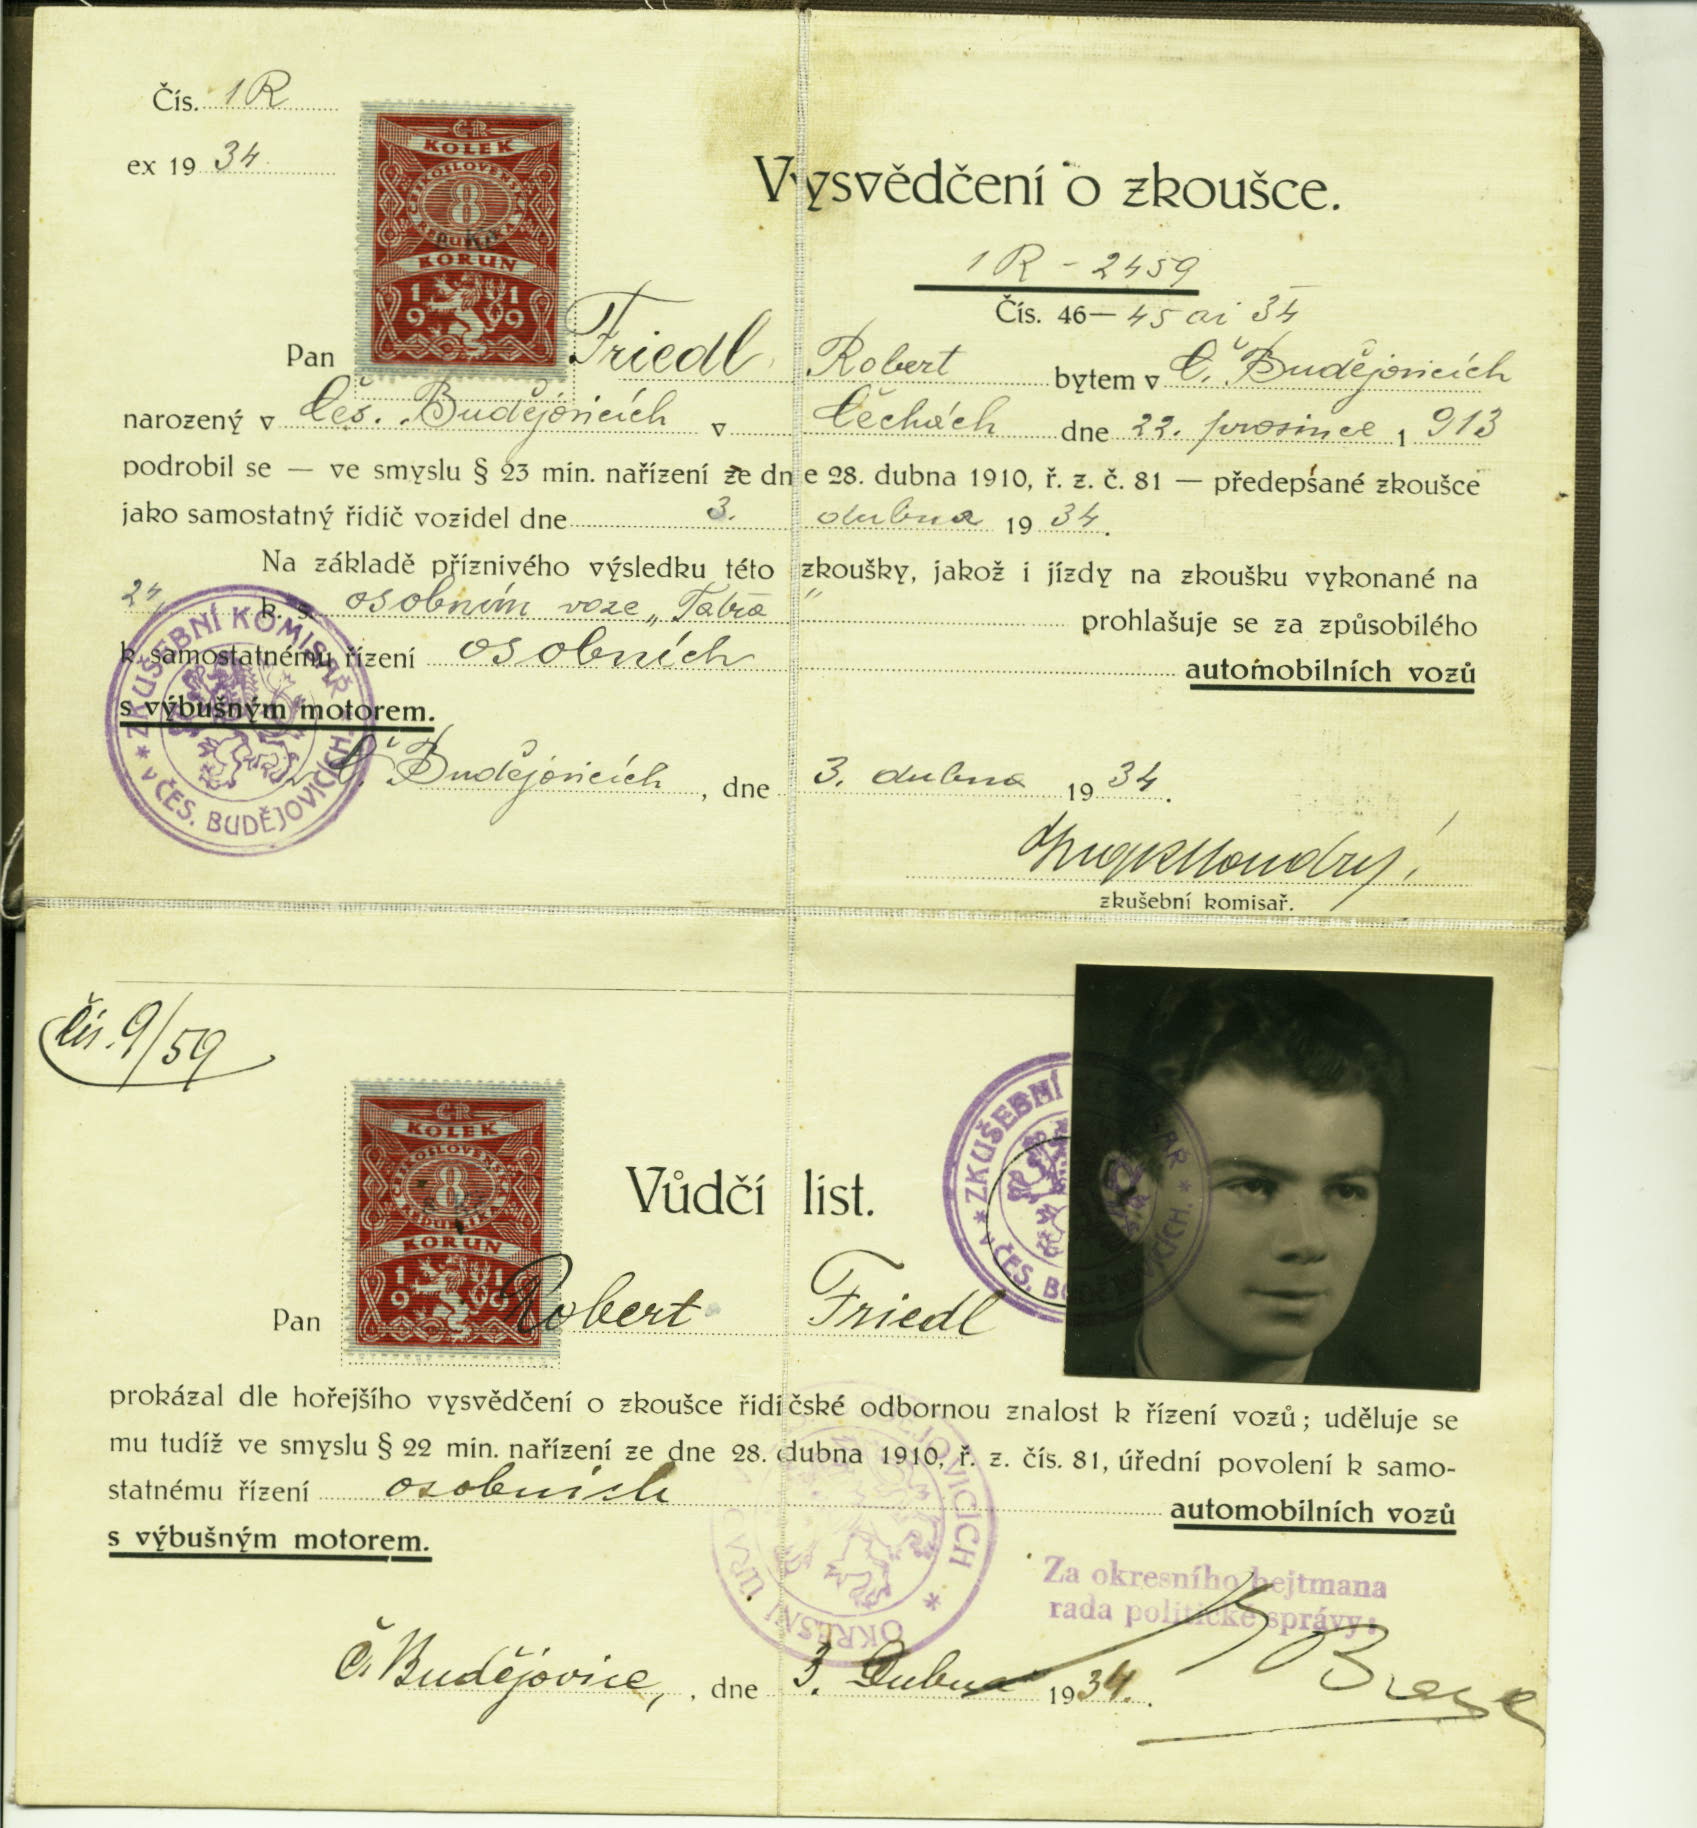 Čís. 1R
ex 19 34
ČR
KOLEK
ČESKOSLOVENSKÁ
8
REPUBLIKA
KORUN
1919
Vysvědčení o zkoušce.
1R - 2459
Čís. 46— 45 ai 34
Pan Friedl Robert bytem v Č. Budějovicích
narozený v Čes. Budějovicích v Čechách dne 22. prosince 1 913
podrobil se — ve smyslu § 23 min. nařízení ze dne 28. dubna 1910, ř. z. č. 81 — předepsané zkoušce
jako samostatný řidič vozidel dne 3. dubna 19 34.
Na základě příznivého výsledku této zkoušky, jakož i jízdy na zkoušku vykonané na
24 k. s. osobním voze „Tatra" prohlašuje se za způsobilého
k samostatnému řízení osobních automobilních vozů
s výbušným motorem.
ZKUŠEBNÍ KOMISAŘ * v ČES. BUDĚJOVICÍCH *
Č. Budějovicích, dne 3. dubna 19 34.
zkušební komisař.
Čís. 9/59
ČR
KOLEK
ČESKOSLOVENSKÁ
8
REPUBLIKA
KORUN
1919
Vůdčí list.
ZKUŠEBNÍ KOMISAŘ * v ČES. BUDĚJOVICÍCH *
Pan Robert Friedl
prokázal dle hořejšího vysvědčení o zkoušce řidičské odbornou znalost k řízení vozů; uděluje se
mu tudíž ve smyslu § 22 min. nařízení ze dne 28. dubna 1910, ř. z. čís. 81, úřední povolení k samo-
statnému řízení osobních automobilních vozů
s výbušným motorem.
OKRESNÍ ÚŘAD V BUDĚJOVICÍCH *
Za okresního hejtmana
rada politické správy:
Č. Budějovice, dne 3. Dubna 1934.